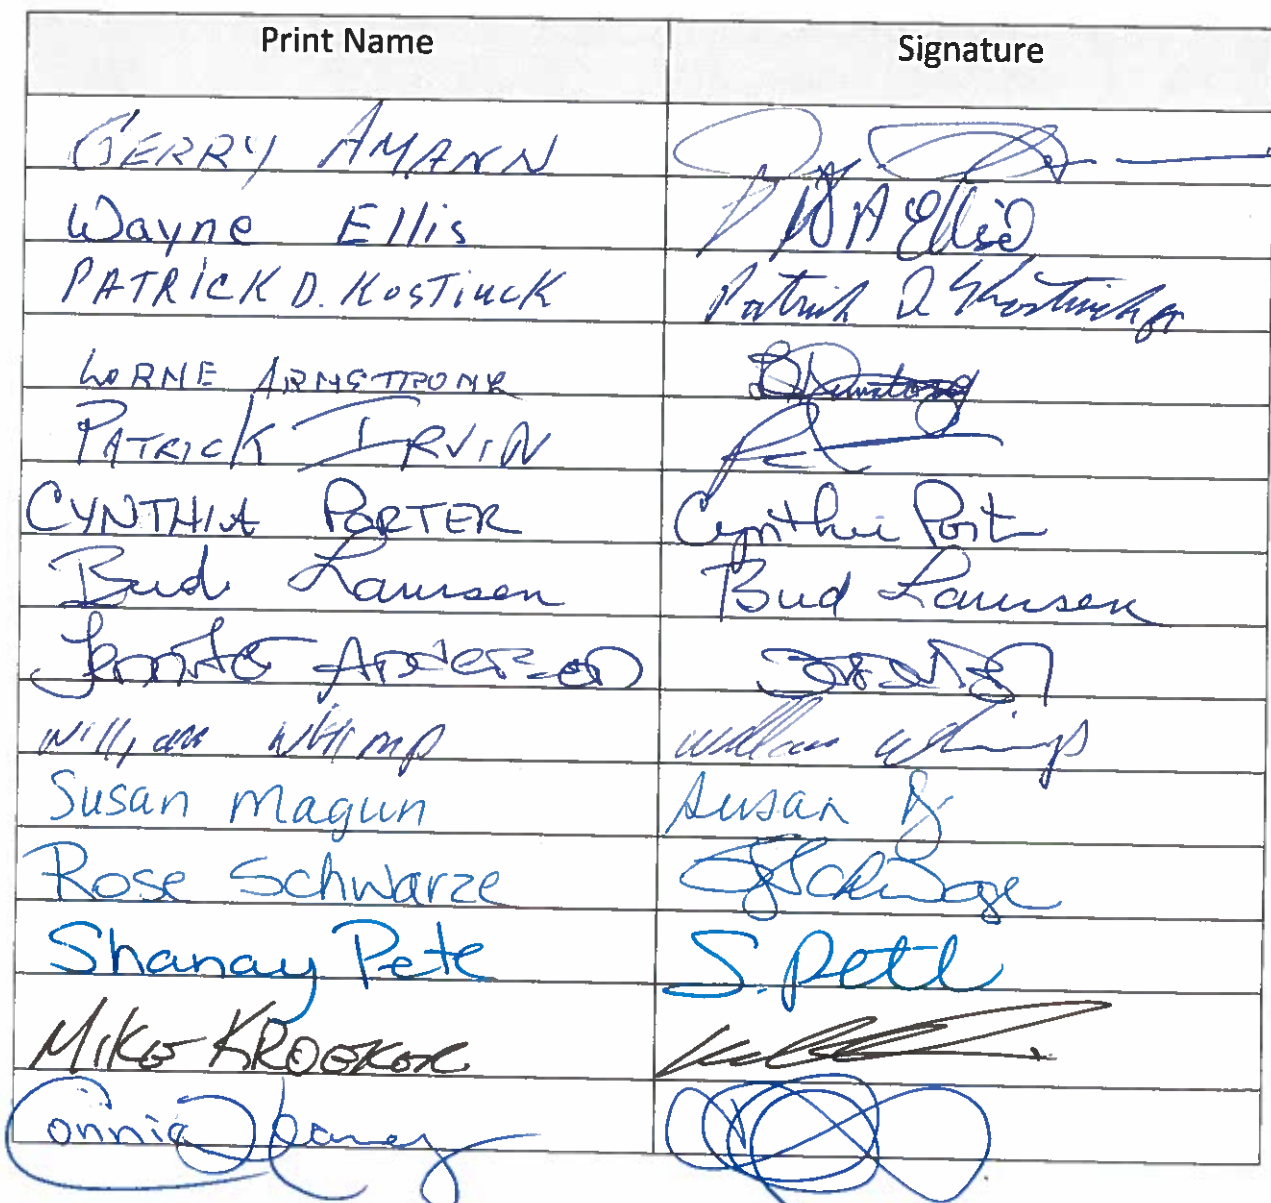 Print Name Signature
GERRY AMANN
Wayne Ellis W A Ellis
PATRICK D. KOSTIUCK Patrick D Kostiuck
LORNE ARMSTRONG Armstrong
PATRICK IRVIN
CYNTHIA PORTER Cynthia Port
Bud Laursen Bud Laursen
Jennifer Anderson
William Whimp William Whimp
Susan Magun Susan
Rose Schwarze
Shanay Pete S. Pete
MIKE KROEKER
Connie